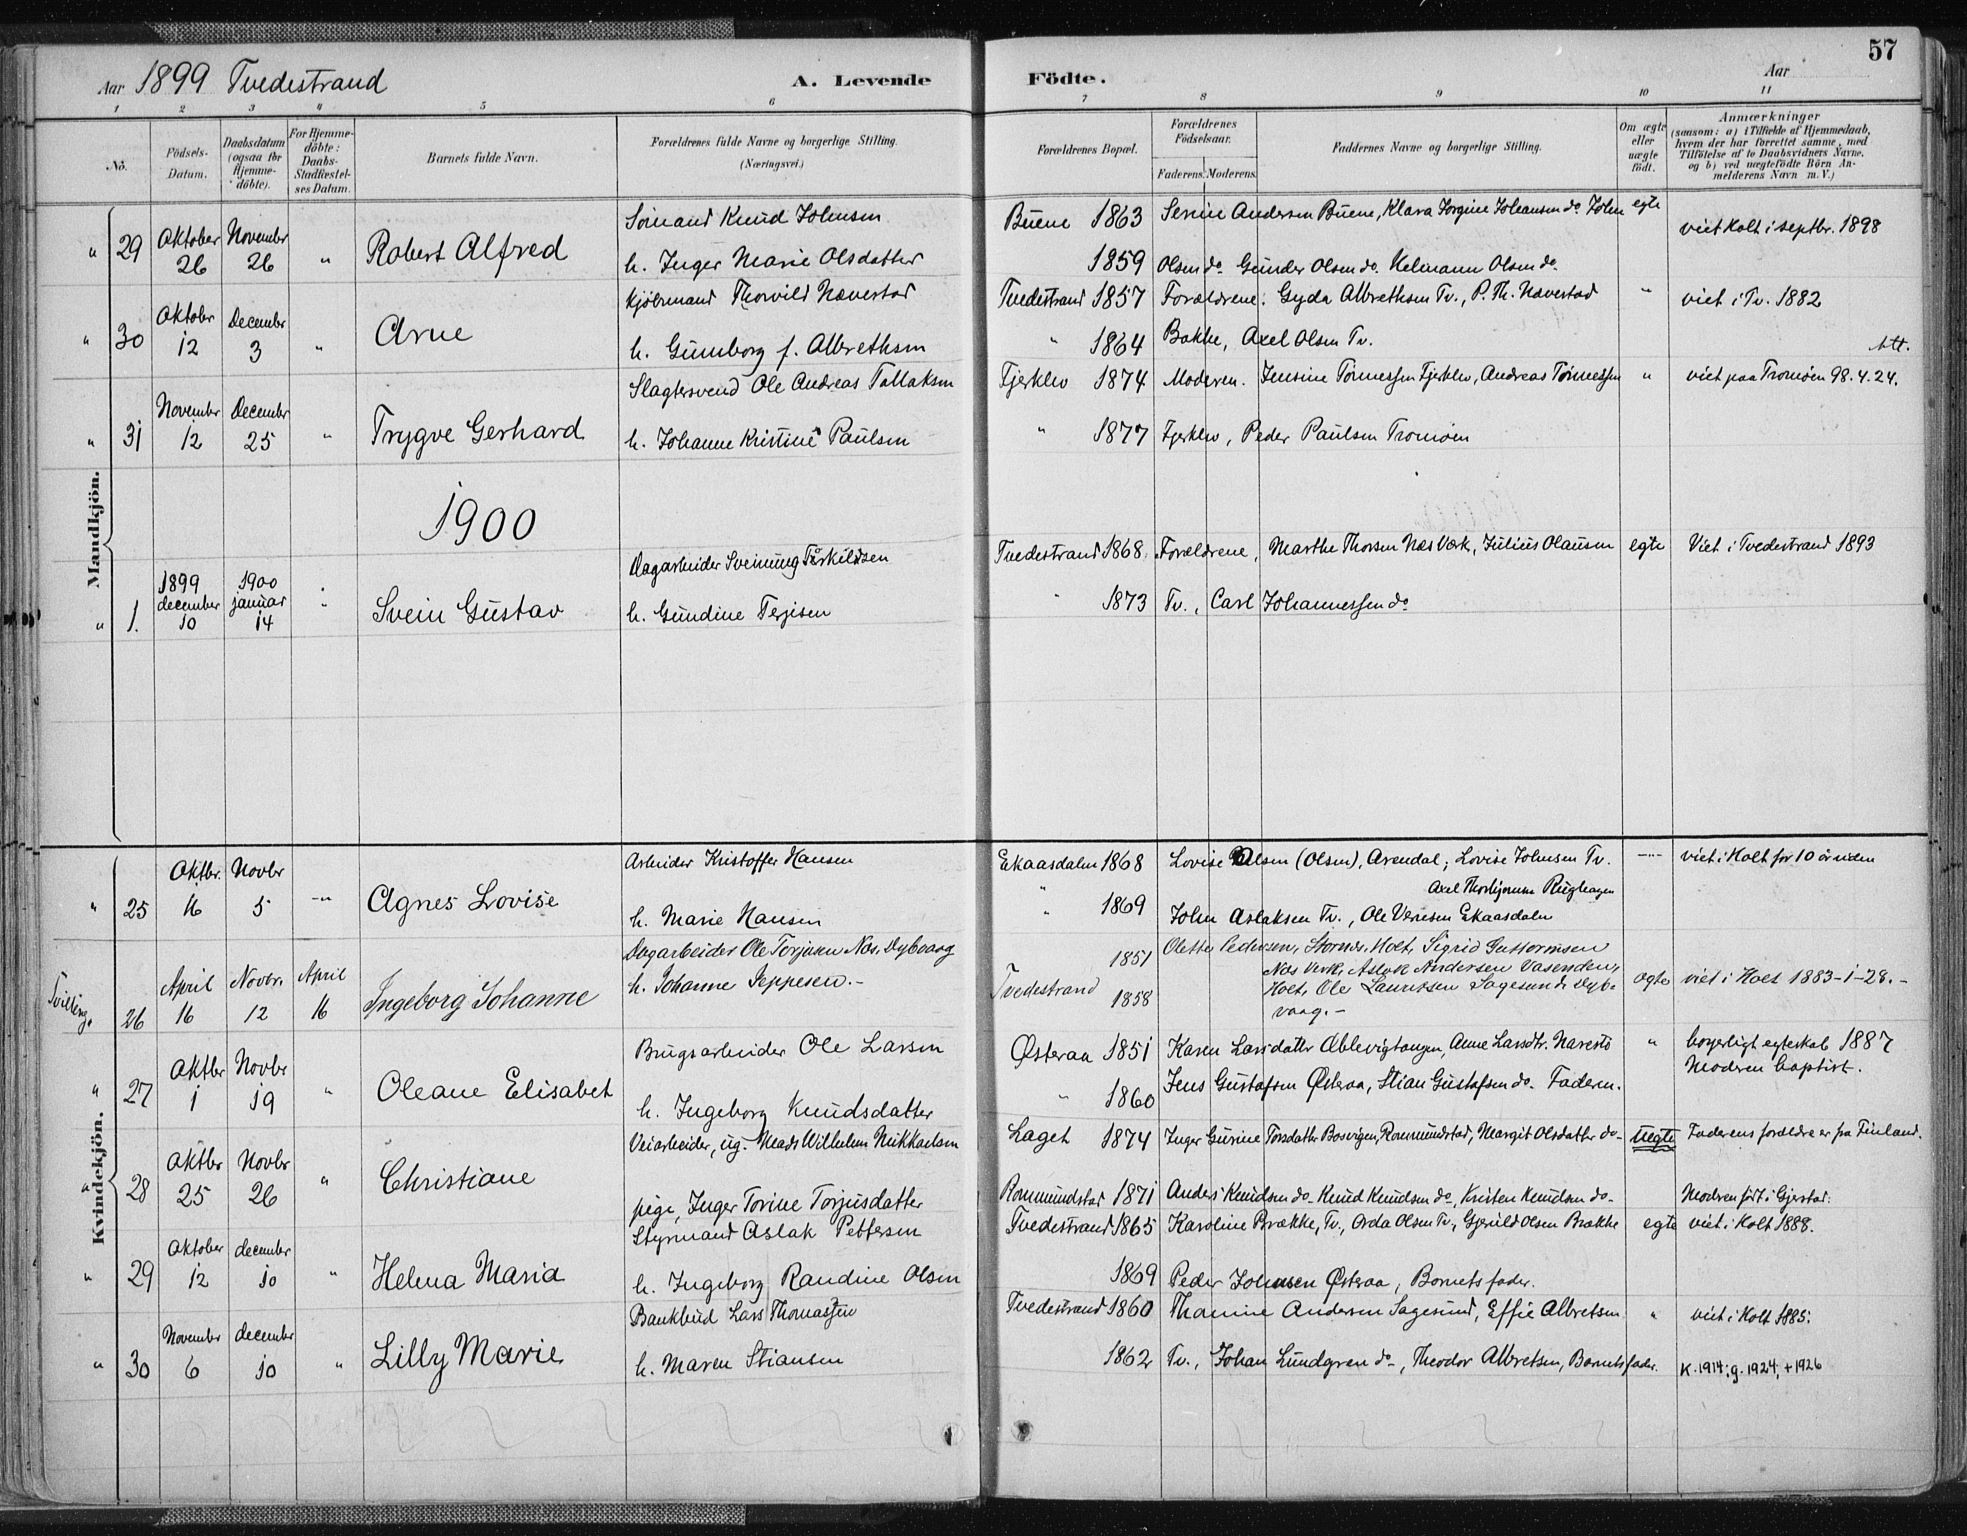 57
Aar 1899 Tvedestrand A. Levende Födte. Aar
1 2 3 4 5 6 7 8 9 10 11
No.
Födsels-Datum.
Daabsdatum (ogsaa for Hjemme-döbte).
For Hjemme-döbte: Daabs-Stadfæstelses Datum.
Barnets fulde Navn.
Forældrenes fulde Navne og borgerlige Stilling. (Næringsvei.)
Forældrenes Bopæl.
Forældrenes Födselsaar.
Faderens. Moderens.
Faddernes Navne og borgerlige Stilling.
Om ægte eller uægte födt.
Anmærkninger (saasom: a) i Tilfælde af Hjemmedaab, hvem der har forrettet samme, med Tilföielse af to Daabsvidners Navne, og b) ved uægtefödte Börn Anmelderens Navn m. V.)
Mandkjön.
" 29 Oktober 26 November 26 " Robert Alfred
Sømand Knud Johnsen
h. Inger Marie Olsdatter
Buene 1863 Serine Andersen Buene, Klara Jorgine Johansen do. John egte viet Holt i septbr. 1898
1859 Olsen do. Gunder Olsen do. Helmann Olsen do.
" 30 Oktober 12 December 3 " Arne
Kjöbmand Thorvild Næverstad
h. Gunnborg f. Albrethsen
Tvedestrand 1857 Forældrene. Gyda Albrethsen Tv., P. Th. Næverstad " viet i Tv. 1882
" 1864 Bakke, Axel Olsen Tv.
Att.
" 31 November 12 December 25 " Trygve Gerhard
Slagtersvend Ole Andreas Tallaksen
h. Johanne Kristine Paulsen
Fjerklev 1874 Moderen. Jensine Tönnessen Fjerklev, Andreas Tönnessen " viet paa Tromöen 98.4.24.
" 1877 Fjerklev, Peder Paulsen Tromöen
1900
" 1. 1899 december 10 1900 januar 14 " Svein Gustav
Dagarbeider Sveinung Tarkildsen
h. Gundine Terjisen
Tvedestrand 1868 Forældrene, Marthe Thorsen Næs Værk, Julius Olausen egte Viet i Tvedestrand 1893
" 1873 Tv., Carl Johannessen do
Kvindekjön.
" 25 Oktbr. 16 Novbr 5 -"- Agnes Lovise
Arbeider Kristoffer Hansen
h. Marie Hansen
Ekaasdalen 1868 Lovise Olsen (Olsen), Arendal; Lovise Johnsen Tv. -"- viet i Holt for 10 år siden
Axel Thorbjørnsen Rughagen
" 1869 John Aslaksen Tv., Ole Ekaasdalen
Tvilling. 26 April 16 Novbr. 12 April 16 Ingeborg Johanne
Dagarbeider Ole Torjusen Næs, Dybvaag
h. Johanne Jeppesen.-
Tvedestrand 1851 Olette Pedersen, Holt, Sigrid Guttormsen
1858 Næs Verk, Aslak Andersen Vasenden,
Holt, Ole Lauritsen Sagesund, Dyb-
vaag.-
ægte viet i Holt 1883-1-28.-
" 27 Oktbr 1 Novbr 19 " Oleane Elisabet
Brugsarbeider Ole Larsen
h. Ingeborg Knudsdatter
Østeraa 1851 Karen Larsdatter Æblevigtangen, Anne Larsdtr. Narestö " borgerligt egteskab 1887
Modren baptist.
" 1860 Jens Gustafsen Østeraa, Stian Gustafsen do. Faderen.
" 28 Oktbr 25 Novbr 26 " Christiane
Veiarbeider, ug. Mads Wilhelm Mikkaelsen
pige, Inger Torine Torjusdatter
Laget 1874 Inger Gurine Torsdatter Bosvigen, Rommundstad, Margit Olsdatter do- uegte Faderens foreldre er fra Finland.
Rommundstad 1871 Anders Knudsen do- Knud Knudsen do-, Kristen Knudsen do- Modren født i Gjerstad.
" 29 Oktober 12 december 10 " Helena Maria
Styrmand Aslak Pettersen
h. Ingeborg Randine Olsen
Tvedestrand 1865 Karoline Brække, Tv., Arda Olsen Tv., Gjeruld Olsen Brække egte viet i Holt 1888.
1869 Peder Johnsen Østeraa, Barnets fader.
" 30 November 6 december 10 " Lilly Marie
Bankbud Lars Thomassen
h. Maren Stiansen
Tvedestrand 1860 Thamine Andersen Sagesund, Effie Albretsen " viet i Holt 1885.
1862 Tv., Johan Lundgren do-, Theodor Albretsen, Barnets fader. K. 1914; g. 1924, + 1926